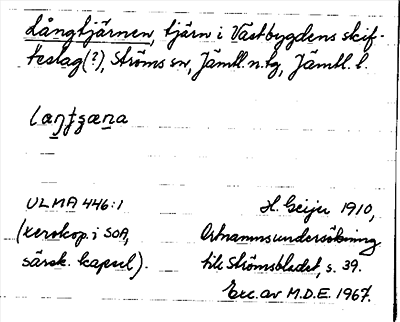 Långtjärnen, tjärn i Västbygdens skif-
teslag(?), Ströms sn, Jämtl. n. tg, Jämtl. l.
ULMA 446:1
H. Geijer 1910,
(xerokop. i SOA,
Ortnamnsundersökning
särsk. kapsel).
till Strömsbladet, s. 39.
Exc. av M.D.E. 1967.